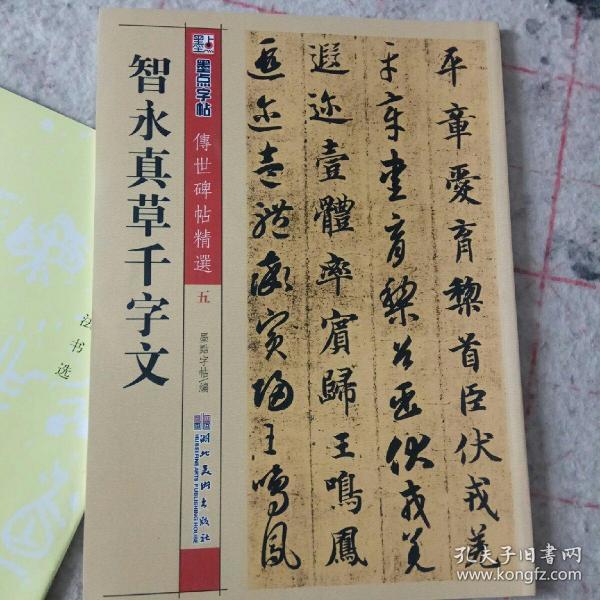 智永真草千字文
墨点
墨点字帖
傳世碑帖精選
五
墨點字帖/編
湖北美术出版社
HUBEI FINE ARTS PUBLISHING HOUSE
平章愛育黎首臣伏戎羌
平章愛育黎首臣伏戎羌
遐迩壹體率賓歸王鳴鳳
遐迩壹體率賓歸王鳴鳳
法书选
孔夫子旧书网
www.kongfz.com